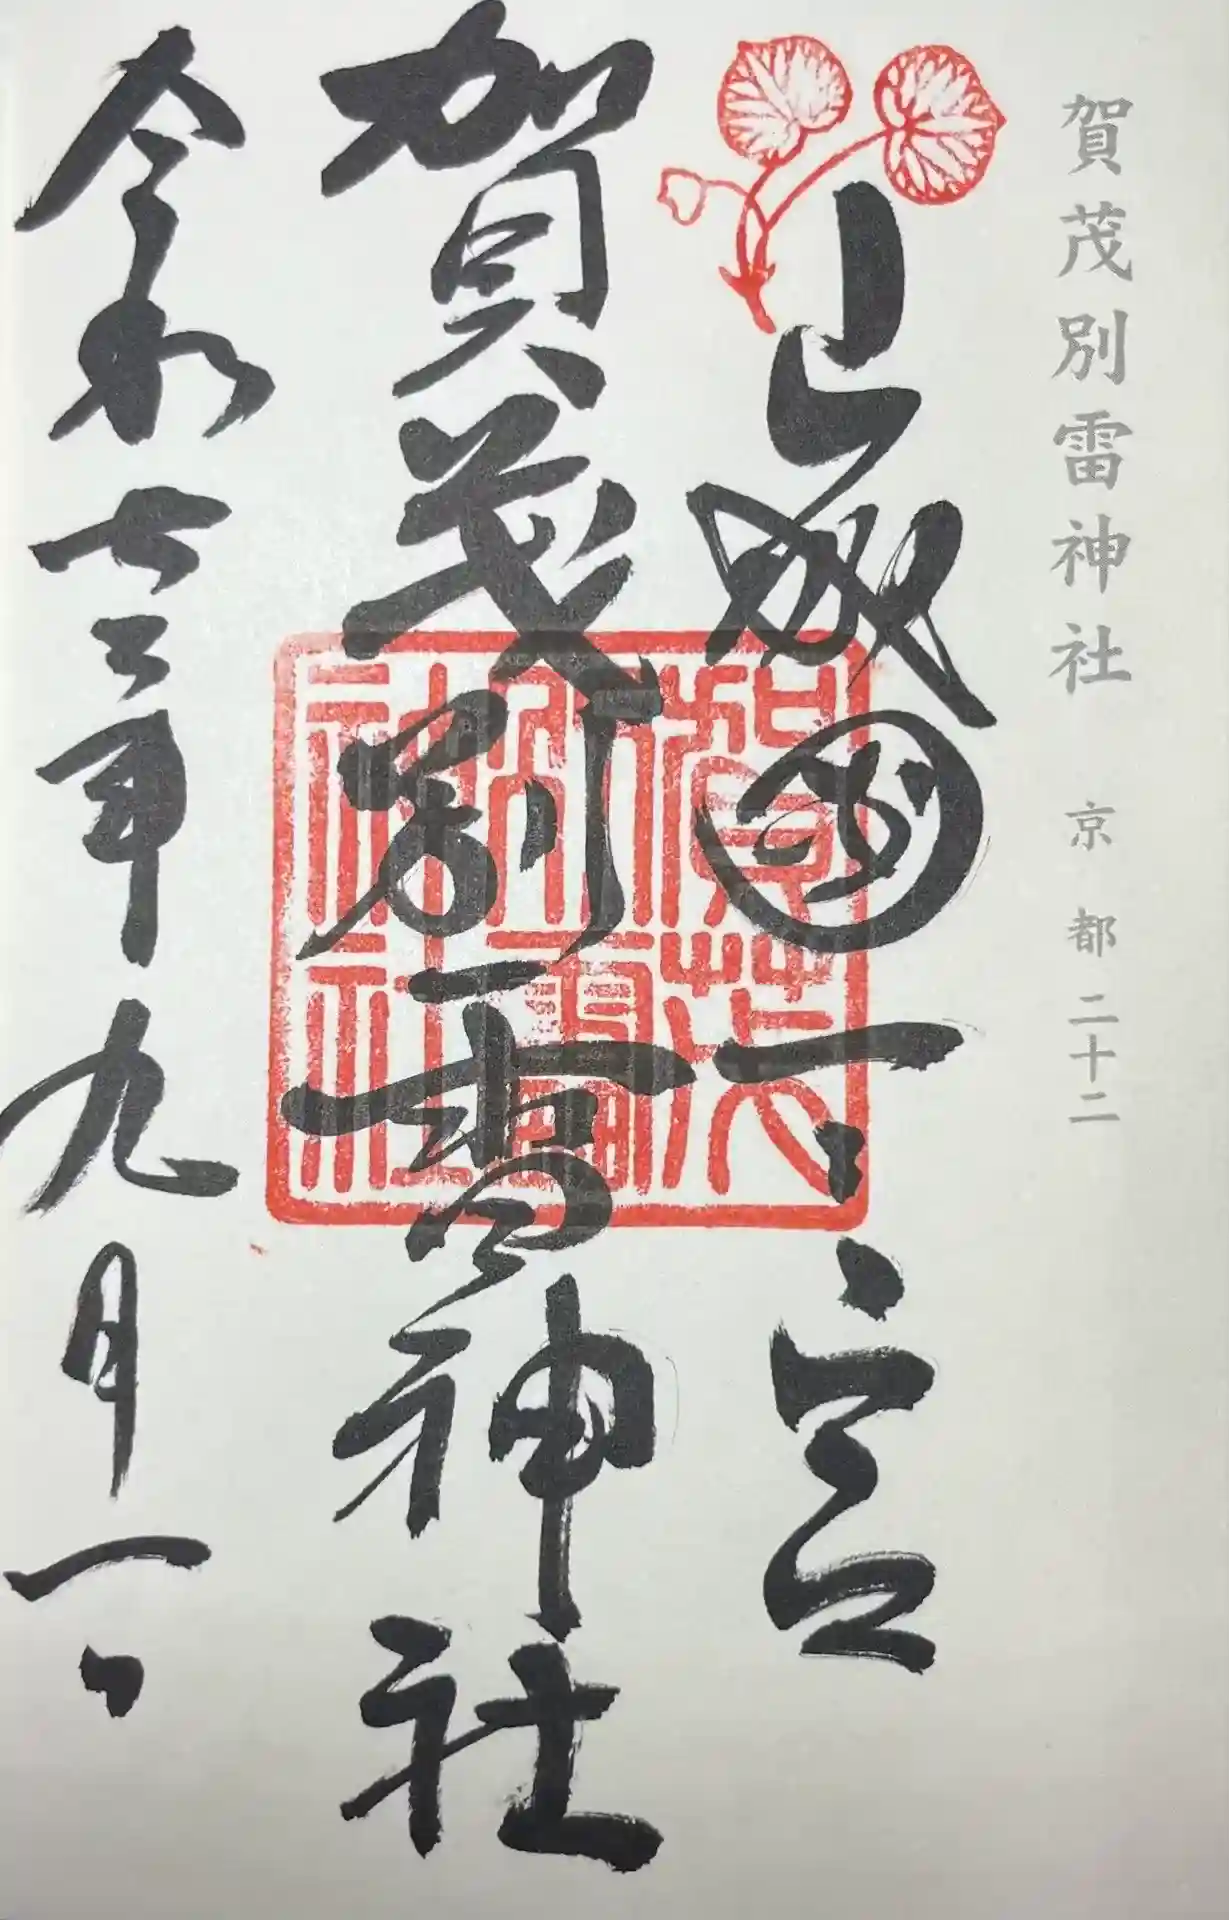 賀茂別雷神社 京都二十二
山城國一宮
賀茂別雷神社
令和七年九月一日
賀茂
別雷
神社